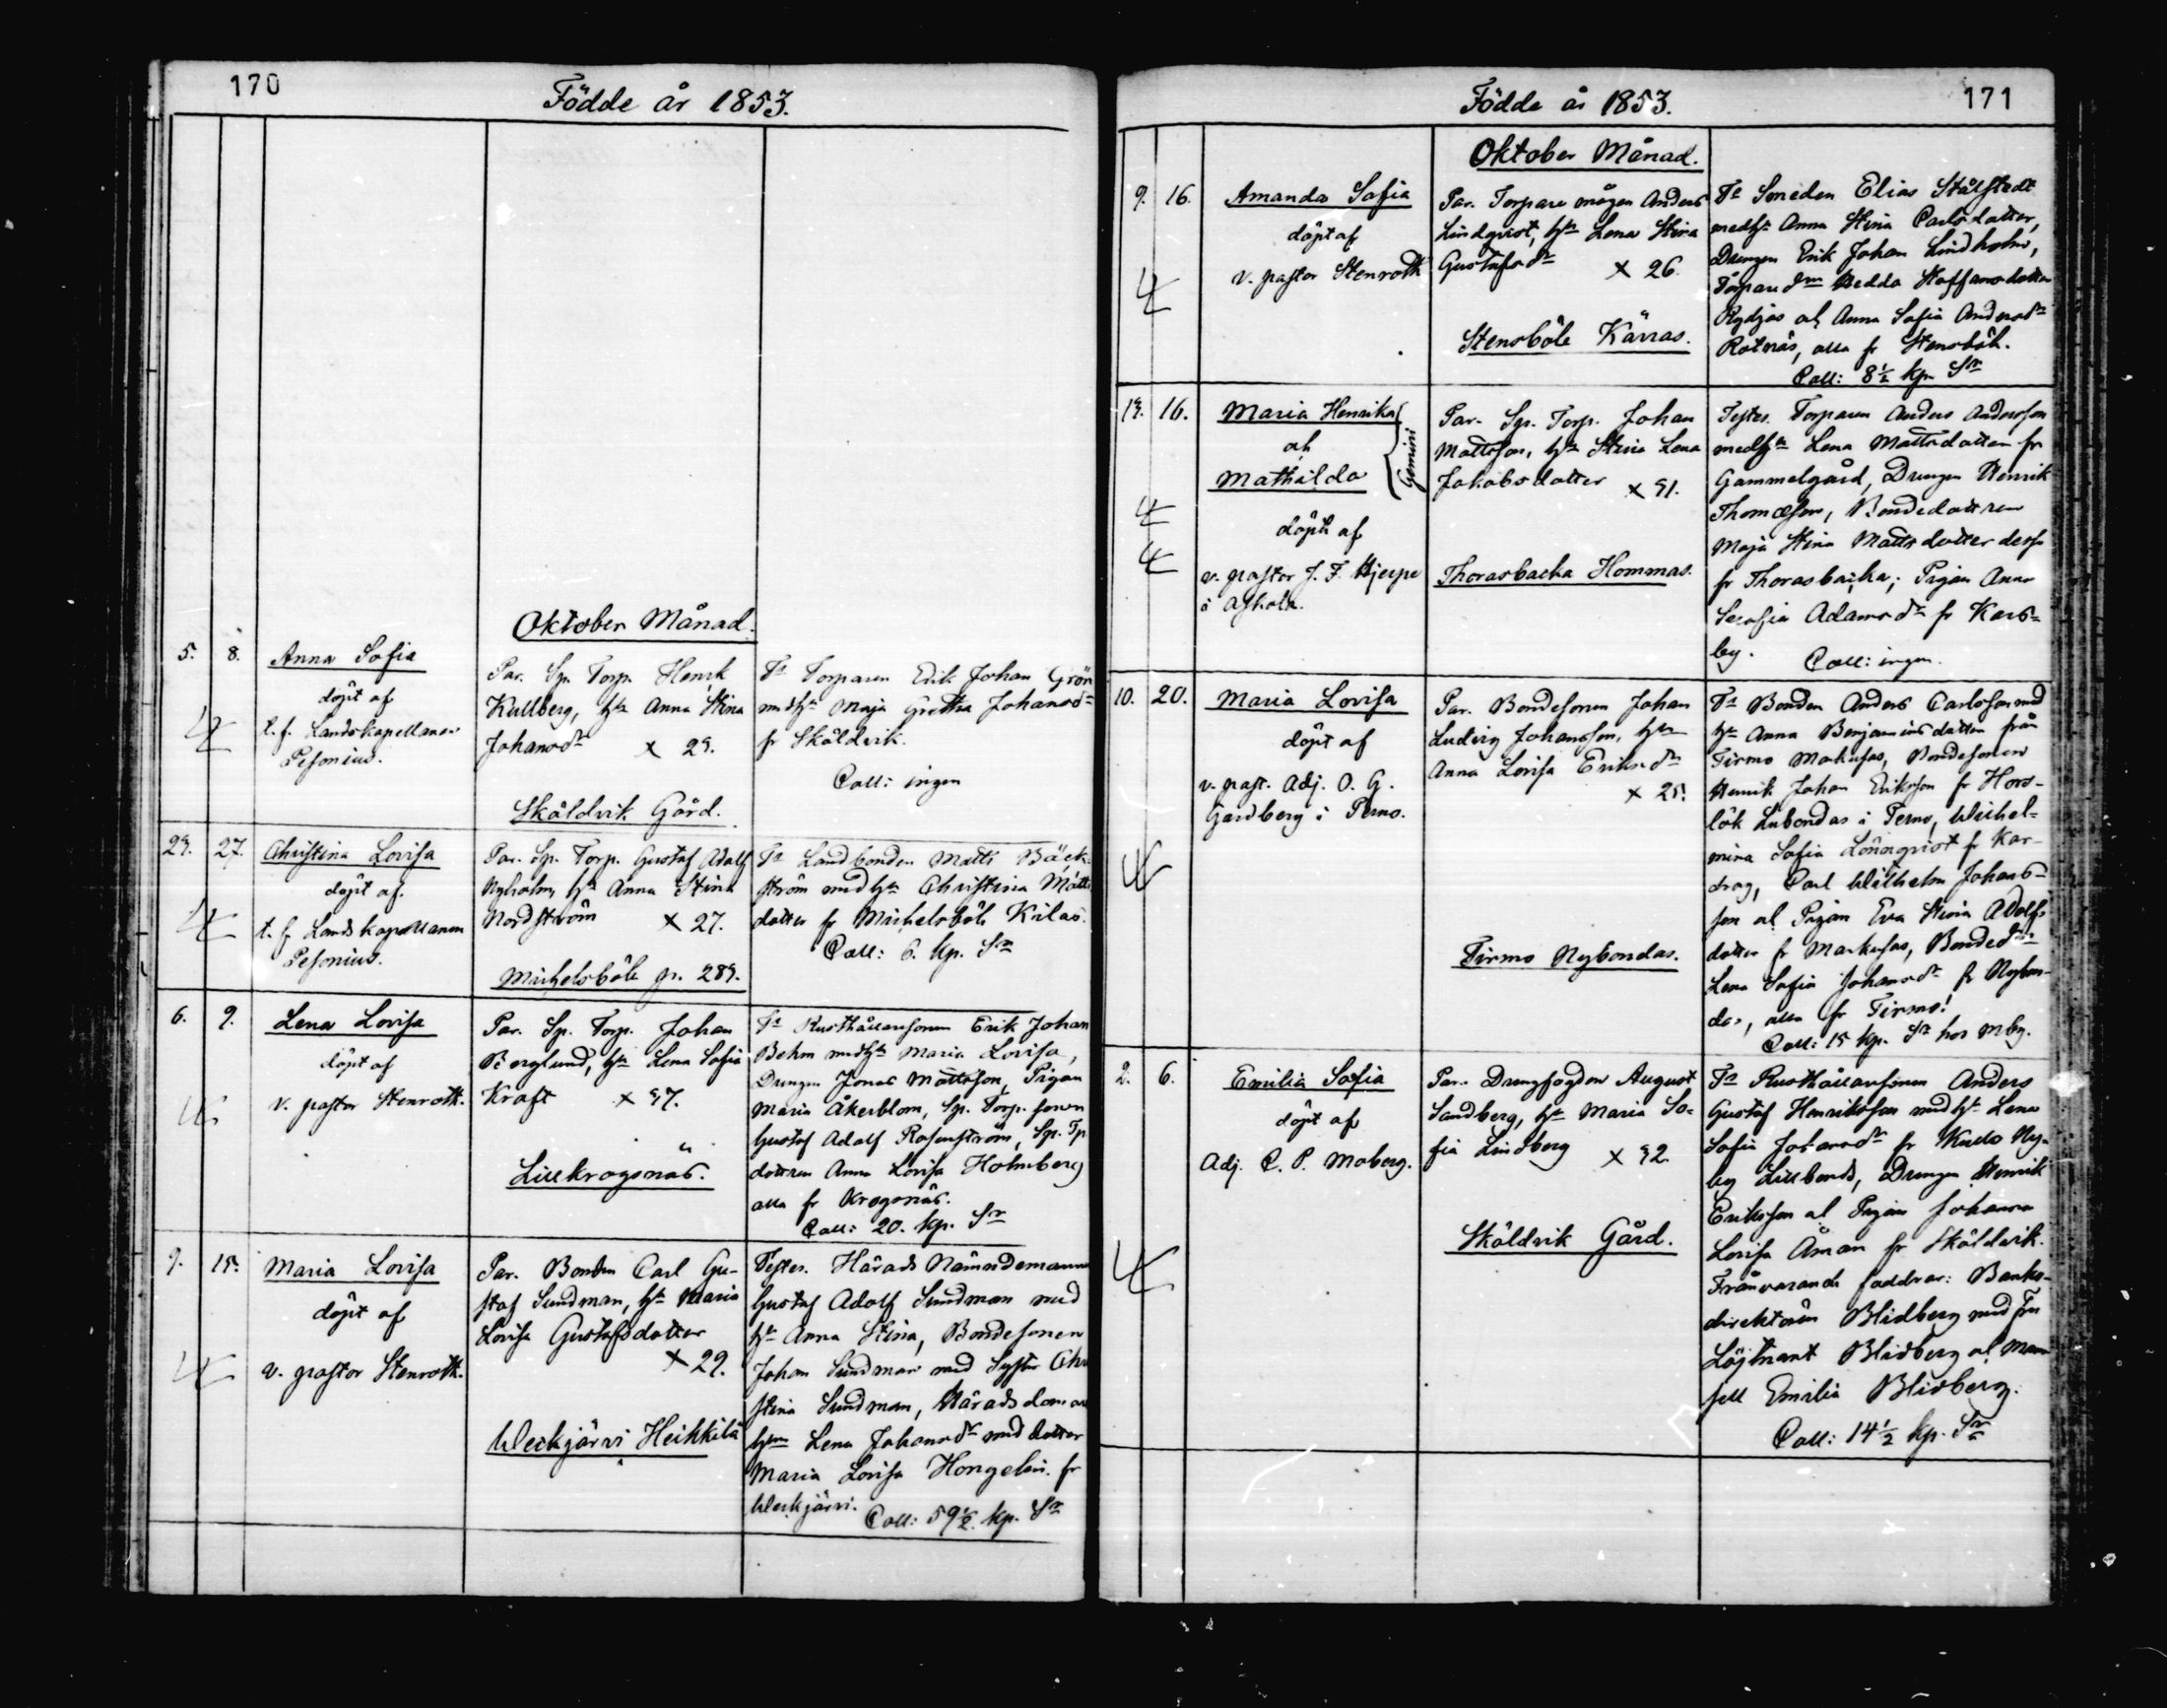 170
Födde år 1853.
Oktober Månad.
5. 8. Anna Sofia
döpt af
t. f. Landskapellanen
Pesonius.
Par. Sp. Torp. Henrik
Kullberg, h. Anna Stina
Johansdr x 29.
Sköldvik Gård.
Ts Torparen Erik Johan Grön
med h. Maja Gretha Johansdr
fr Sköldvik.
Coll: ingen
23. 27. Christina Lovisa
döpt af
t. f. Landskapellanen
Pesonius.
Par. Sp. Torp. Gustaf Adolf
Nyholm, h. Anna Stina
Nordström x 27.
Michelsböle p. 289.
Ts Landbonden Matts Bäck-
ström med h. Christina Matts
dotter fr Michelsböle Kilas.
Coll: 6. kp. Sr
6. 9. Lena Lovisa
döpt af
v. pastor Stenroth.
Par. Sp. Torp. Johan
Berglund, h. Lena Sofia
Kraft x 37.
Lillkrogsnäs.
Ts Rusthållaresonen Erik Johan
Behm med h. Maria Lovisa,
Drengen Jonas Mattsson, Pigan
Maria Åkerblom, Sp. Torp. sonen
Gustaf Adolf Rosenström, Sp. Tp
dottren Anna Lovisa Holmberg
alla fr Krogsnäs.
Coll: 20. kp. Sr
9. 15. Maria Lovisa
döpt af
v. pastor Stenroth.
Par. Bonden Carl Gu-
staf Sundman, h. Maria
Lovisa Gustafsdotter
x 29.
Weckjärvi Heikkilä
Testes. Härads Nämndemannen
Gustaf Adolf Sundman med
h. Anna Stina, Bondesonen
Johan Sundman med Syster Chri
stina Sundman, Häradsdomare
h. Lena Johansdr med dotter
Maria Lovisa Hongelin fr
Weckjärvi. Coll: 59 1/2. kp. Sr
Födde år 1853.
171
Oktober Månad.
9. 16. Amanda Sofia
döpt af
v. pastor Stenroth
Par. Torpare mågen Anders
Lindqvist, h. Lena Stina
Gustafsdr x 26.
Stensböle Kärras.
Ts Smeden Elias Stålstedt
med h. Anna Stina Carlsdotter,
Drengen Erik Johan Lindholm,
Torpare dr Hedda Staffansdotter
Rydjas och Anna Sofia Andersdr
Rotnäs, alla fr Stensböle.
Coll: 8 1/2 kp Sr
13. 16. Maria Henrika
och
Mathilda
Gemini
döpte af
v. pastor J. F. Hjerpe
i Askola.
Par. Sp. Torp. Johan
Mattsson, h. Stina Lena
Jakobsdotter x 31.
Thorasbacka Hommas.
Testes. Torparen Anders Andersson
med h. Lena Mattsdotter fr
Gammelgård, Drengen Henrik
Thomasson, Bondedottren
Maja Stina Mattsdotter desse
fr Thorasbacka; Pigan Anna
Serafia Adamsdr fr Kars-
by. Coll: ingen.
10. 20. Maria Lovisa
döpt af
v. past. Adj. O. G.
Gardberg i Perno.
Par. Bondesonen Johan
Ludvig Johansson, h.
Anna Lovisa Eriksdr
x 25.
Tirmo Nybondas.
Ts Bonden Anders Carlsson med
h. Anna Benjaminsdotter från
Tirmo Markusas, Bondesonen
Henrik Johan Eriksson fr Hors-
lök Lubondas i Perno, Wilhel-
mina Sofia Lönnqvist fr Kar-
drag, Carl Wilhelm Johans-
son och Pigan Eva Stina Adolfs
dotter fr Markusas, Bondedr
Lena Sofia Johansdr fr Nybon-
das, alla fr Tirmo!
Coll: 15 kp. Sr hos mbg.
2. 6. Emilia Sofia
döpt af
Adj. C. P. Moberg.
Par. Drengfogden August
Sandberg, h. Maria So-
fia Lindberg x 32.
Sköldvik Gård.
Ts Rusthållaresonen Anders
Gustaf Henriksson med h. Lena
Sofia Johansdr fr Kulls Ny-
by Lillbonds, Drengen Henrik
Eriksson och Pigan Johanna
Lovisa Åman fr Sköldvik.
Frånvarande faddrar: Banko-
direktören Blidberg med Fru
Löjtnant Blidberg och Mam-
sell Emilia Blidberg.
Coll: 14 1/2 kp. Sr